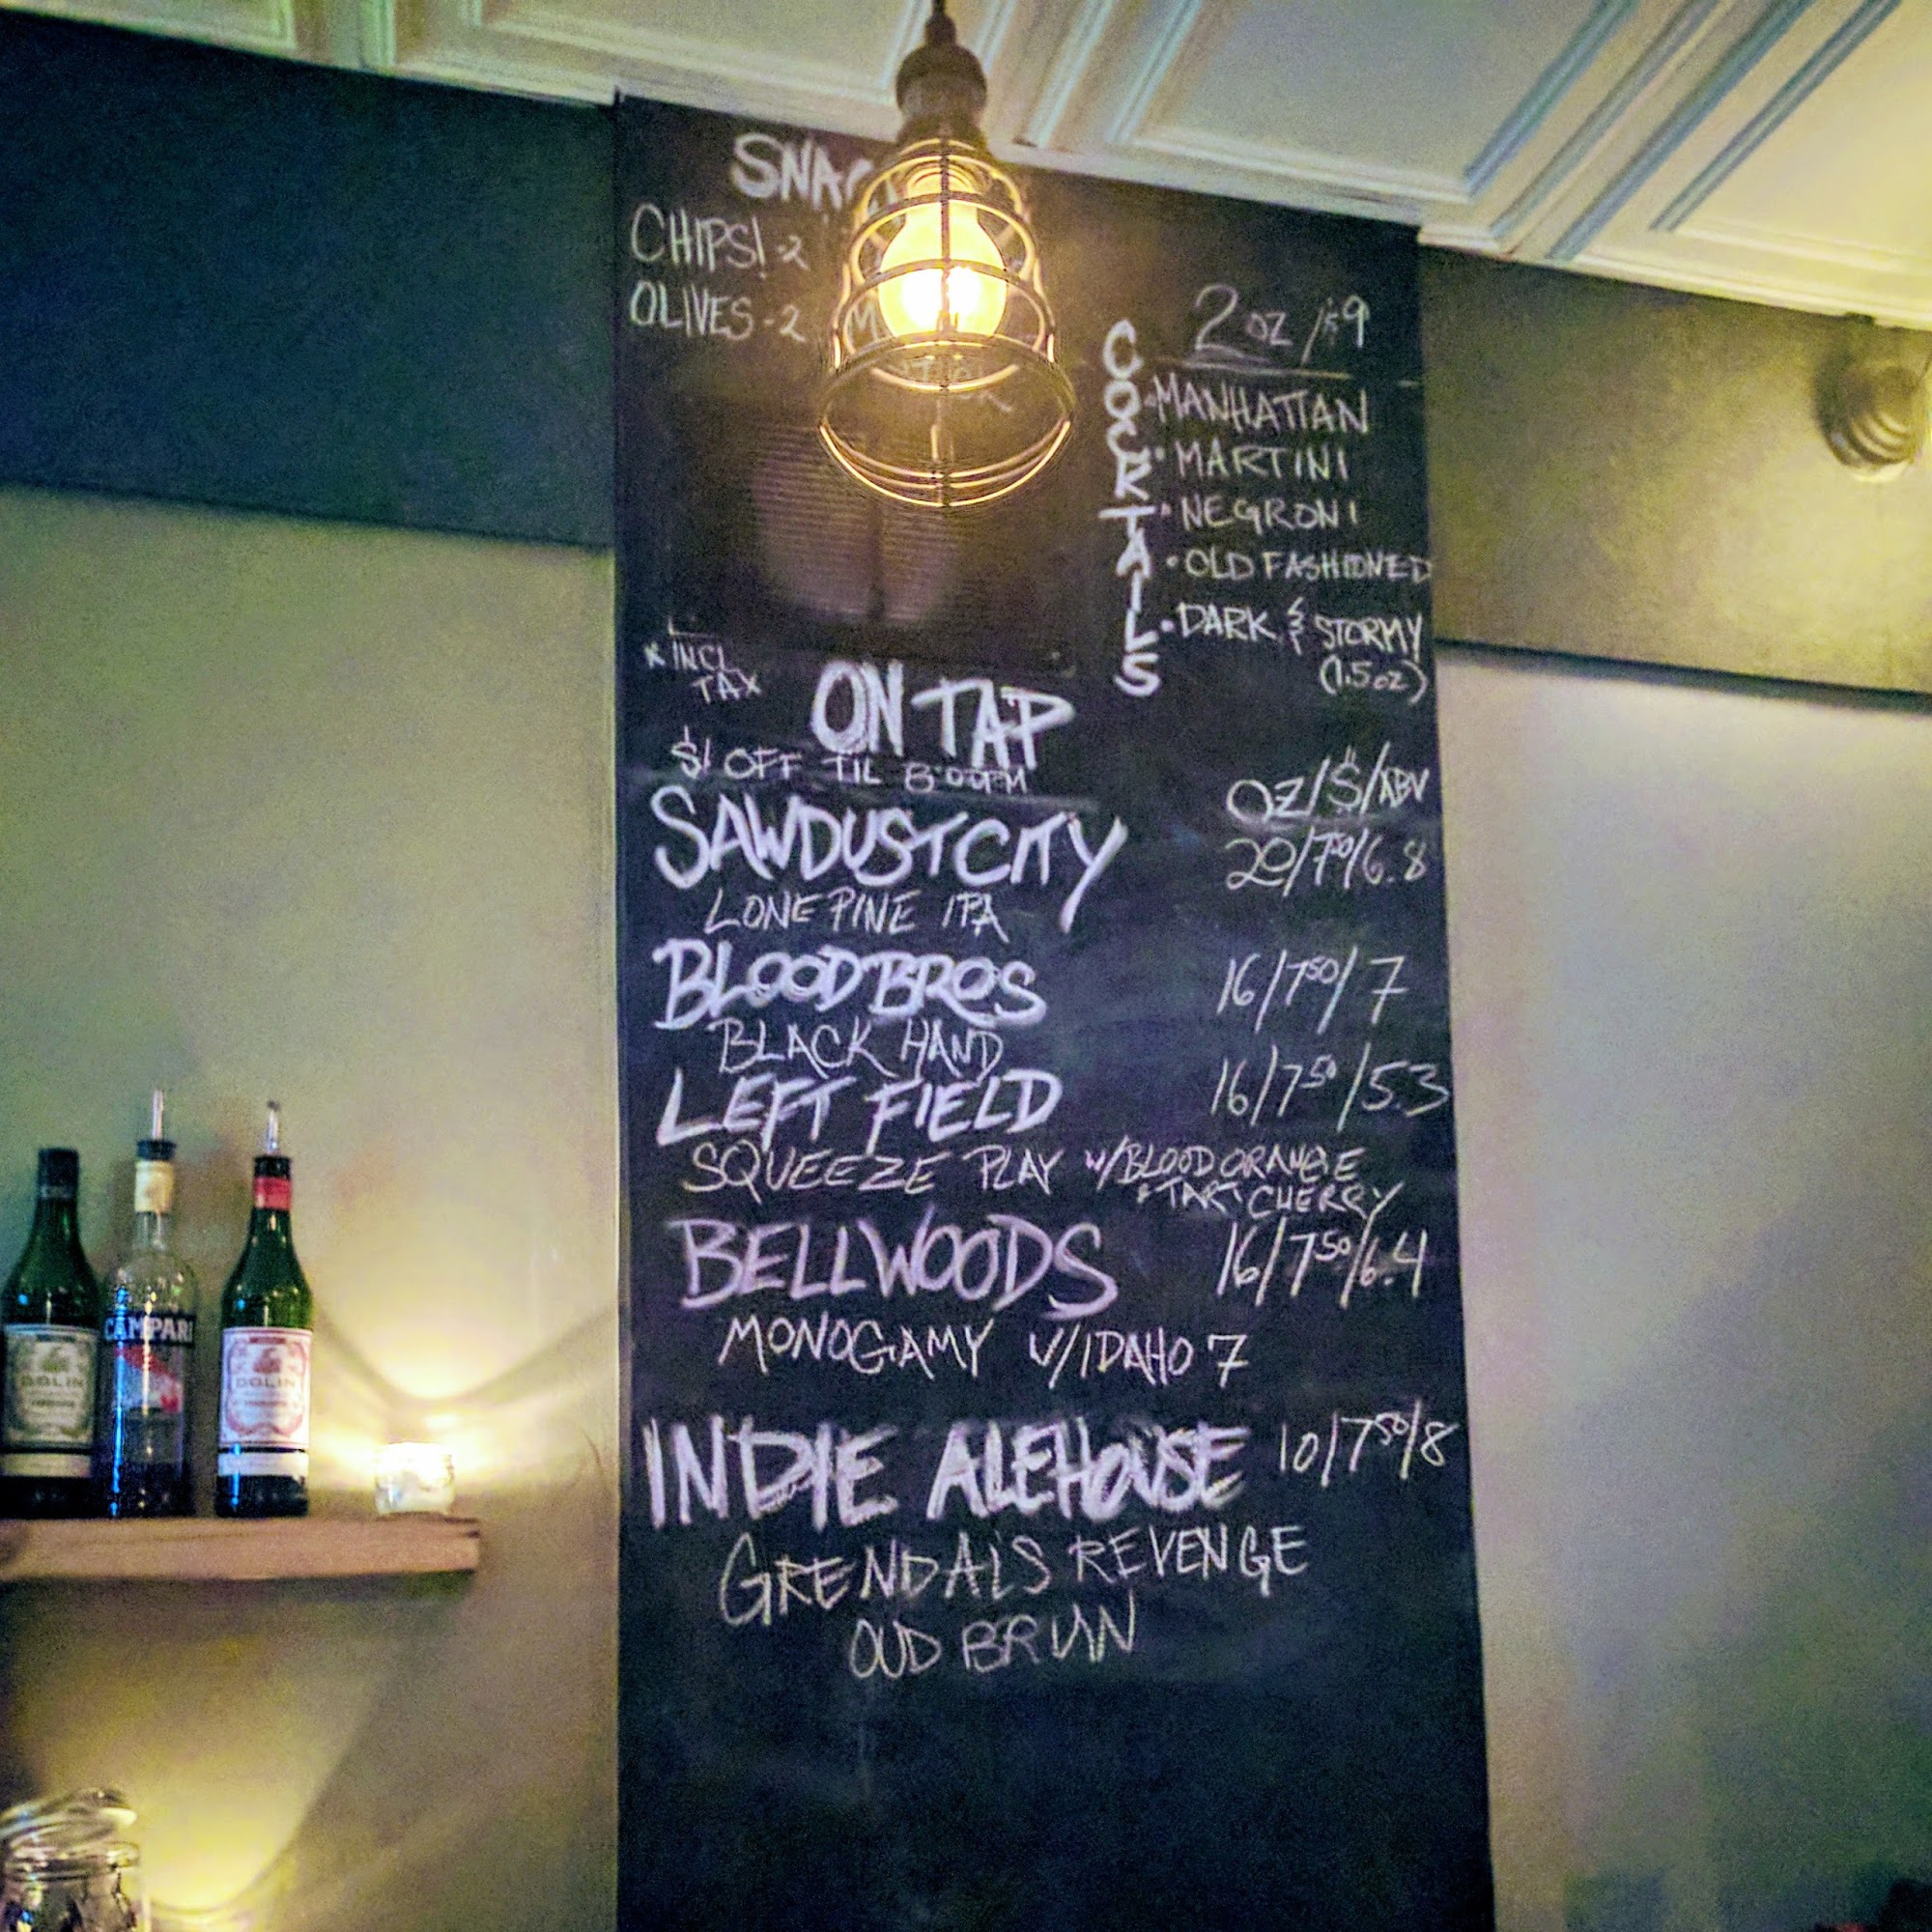 CHIPS! -2
OLIVES -2
COCKTAILS
2 oz / $9
• MANHATTAN
• MARTINI
• NEGRONI
• OLD FASHIONED
• DARK & STORMY
(1.5 oz)
* INCL
TAX
ON TAP
$1 OFF TIL
OZ/$/ABV
SAWDUST CITY 20/7.50/6.8
LONE PINE IPA
BLOOD BROS 16/7.50/7
BLACK HAND
LEFT FIELD 16/7.50/5.3
SQUEEZE PLAY w/BLOOD ORANGE
& TART CHERRY
BELLWOODS 16/7.50/6.4
MONOGAMY W/IDAHO 7
INDIE ALEHOUSE 10/7.50/8
GRENDALS REVENGE
OUD BRUN
DOLIN
CAMPARI
DOLIN